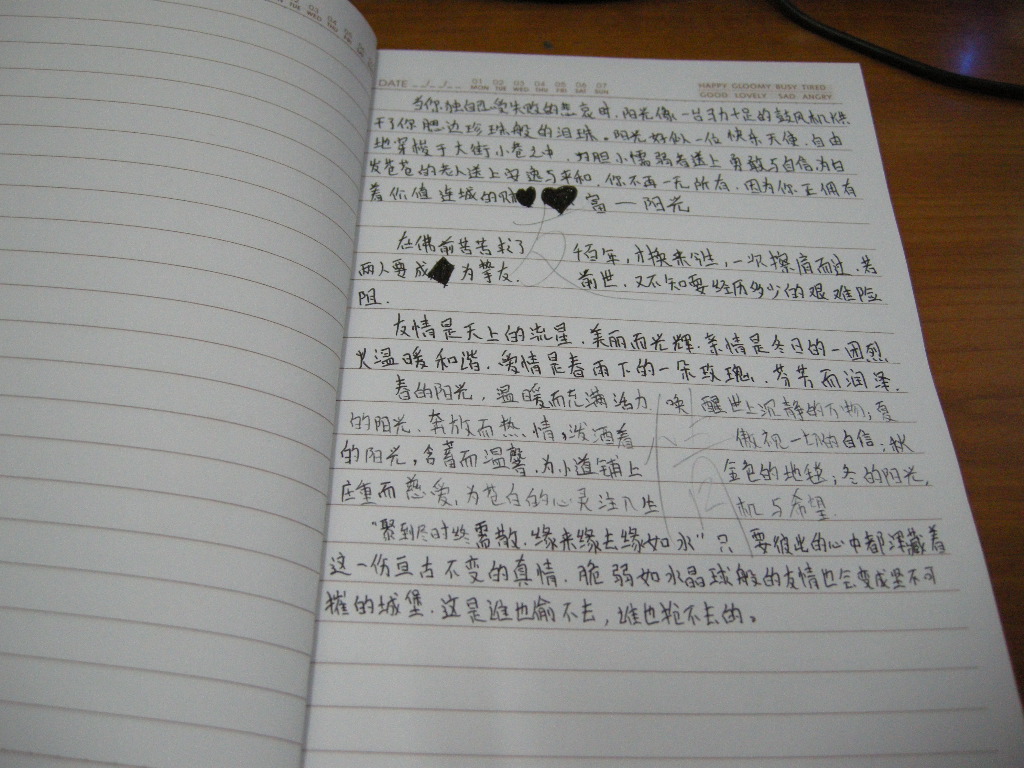 01 02 03 04 05 06 07
DATE MON TUE WED THU FRI SAT SUN
HAPPY GLOOMY BUSY TIRED
GOOD LOVELY SAD ANGRY
当你独自忍受失败的悲哀时,阳光像一台马力十足的鼓风机烘
干了你腮边珍珠般的泪珠。阳光好似一位快乐天使,自由
地穿梭于大街小巷之中,为胆小懦弱者送上勇敢与自信,为白
发苍苍的老人送上安逸与平和,你不再一无所有,因为你正拥有
着价值连城的财富—阳光
在佛前苦苦求了千百年,才换来今生,一次擦肩而过,若
两人要成为挚友,前世,又不知要经历多少的艰难险
阻.
友情是天上的流星,美丽而光辉.亲情是冬日的一团烈
火温暖和谐.爱情是春雨下的一朵玫瑰,芬芳而润泽.
春的阳光,温暖而充满活力,唤醒世上沉静的万物;夏
的阳光,奔放而热情,泼洒着傲视一切的自信;秋
的阳光,含蓄而温馨,为小道铺上金色的地毯;冬的阳光,
庄重而慈爱,为苍白的心灵注入生机与希望.
“聚到尽时终需散,缘来缘去缘如水”只要彼此的心中都深藏着
这一份亘古不变的真情,脆弱如水晶球般的友情也会变成坚不可
摧的城堡.这是谁也偷不去,谁也抢不去的。
友情